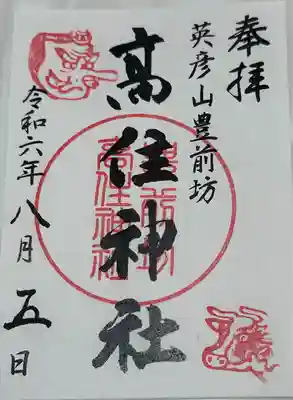 奉拝
英彦山豊前坊
髙住神社
豊前坊
高住神社
令和六年八月五日